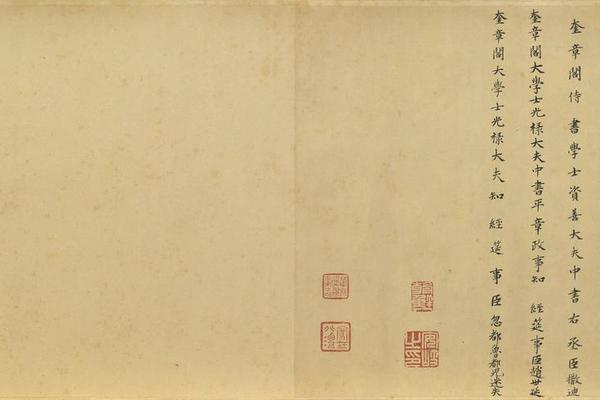 奎章閣侍書學士資善大夫中書右丞臣撒迪
奎章閣大學士光祿大夫中書平章政事知經筵事臣趙世延
奎章閣大學士光祿大夫知經筵事臣忽都魯都兒迷失